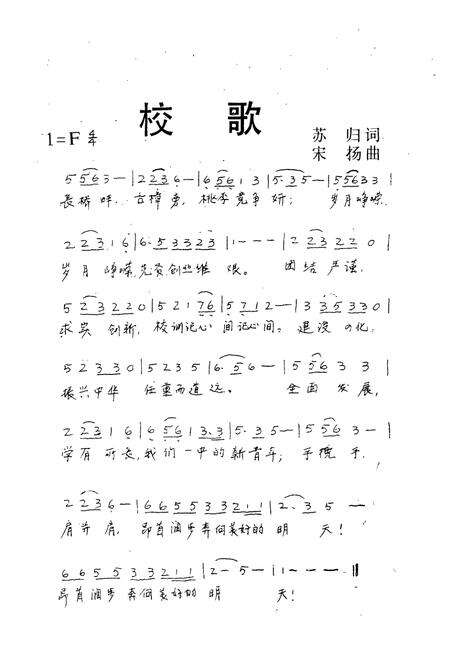 校 歌
1=F 2/4
苏 归 词
宋 扬 曲
5 5 6 3 — | 2 2 3 6 — | 6 5 6 1 3 | 5 · 3 5 — | 5 5 6 3 3 |
長桥畔, 古樟勇, 桃李竞争妍; 岁月峥嵘,
2 2 3 1 6 | 6 · 5 3 3 2 3 | 1 — — — | 2 2 3 2 2 0 |
岁月峥嵘 创业维 艰。 团结严谨,
5 2 3 2 2 0 | 5 2 1 7 6 | 5 7 1 2 — | 3 3 5 3 3 0 |
求实 创新, 校训记心间记心间。 化,
5 2 3 3 0 | 5 2 3 5 | 6 · 5 6 — | 5 5 6 3 3 |
振兴中华 任重而道远。 全面 发展,
2 2 3 1 6 | 6 5 6 1 3 · 3 | 5 · 3 5 — | 5 5 6 3 — |
学有所长, 我们一中的新青年; 手挽手,
2 2 3 6 — | 6 6 5 5 3 3 2 1 1 | 2 · 3 5 — |
肩并肩, 昂首阔步奔向美好的 明 天!
6 6 5 5 3 3 2 1 1 | 2 — 5 — | 1 — — — ‖
昂首阔步 奔向美好的 明 天!